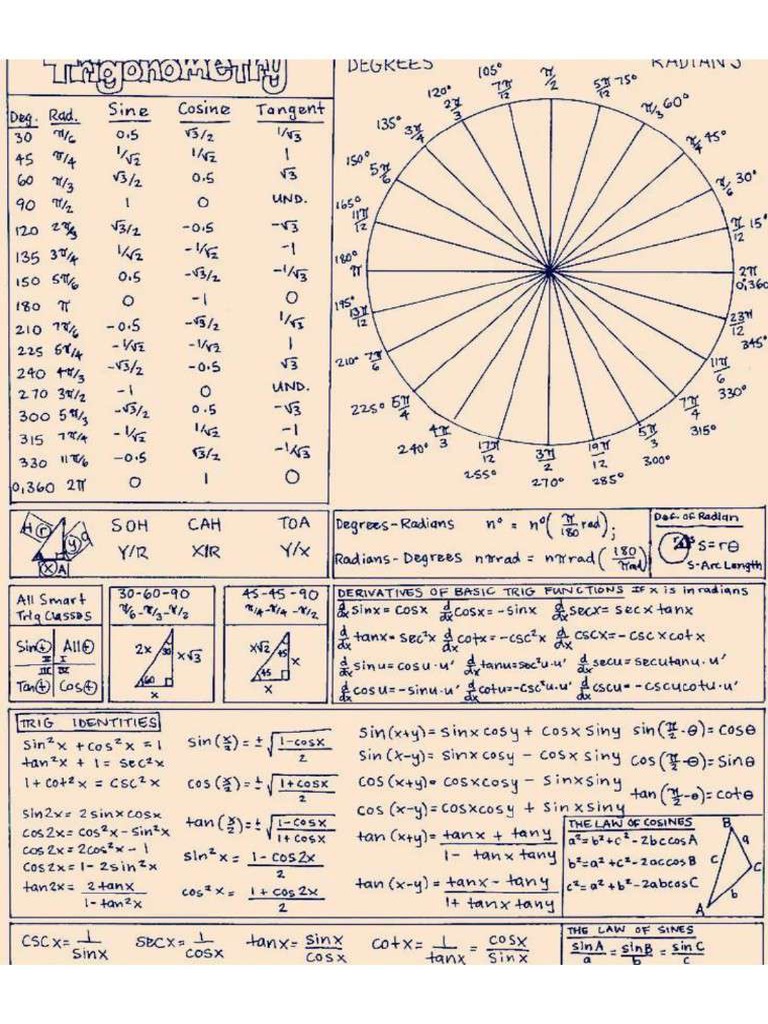 Trigonometry
Deg. Rad. Sine Cosine Tangent
30 π/6 0.5 √3/2 1/√3
45 π/4 1/√2 1/√2 1
60 π/3 √3/2 0.5 √3
90 π/2 1 0 UND.
120 2π/3 √3/2 -0.5 -√3
135 3π/4 1/√2 -1/√2 -1
150 5π/6 0.5 -√3/2 -1/√3
180 π 0 -1 0
210 7π/6 -0.5 -√3/2 1/√3
225 5π/4 -1/√2 -1/√2 1
240 4π/3 -√3/2 -0.5 √3
270 3π/2 -1 0 UND.
300 5π/3 -√3/2 0.5 -√3
315 7π/4 -1/√2 1/√2 -1
330 11π/6 -0.5 √3/2 -1/√3
0,360 2π 0 1 0
DEGREES RADIANS
π/2
5π/12 75°
π/3 60°
π/4 45°
π/6 30°
π/12 15°
2π 0,360
23π/12 345°
11π/6 330°
7π/4 315°
5π/3 300°
19π/12 285°
3π/2 270°
17π/12 255°
4π/3 240°
225° 5π/4
210° 7π/6
195° 13π/12
180° π
165° 11π/12
150° 5π/6
135° 3π/4
120° 2π/3
105° 7π/12
H r y O
x A
SOH CAH TOA
Y/R X/R Y/X
Degrees-Radians n° = n°(π/180 rad);
Radians-Degrees nπrad = nπrad(180/πrad)
Def. of Radian
r s S=rθ
S-Arc Length
All Smart
Trig Classes
Sin⊕ All⊕
II I
III IV
Tan⊕ Cos⊕
30-60-90
π/6-π/3-π/2
2x 30 x√3
60
x
45-45-90
π/4-π/4-π/2
x√2 45 x
45
x
DERIVATIVES OF BASIC TRIG FUNCTIONS IF x is in radians
d/dx sinx = cosx d/dx cosx = -sinx d/dx secx = secx tanx
d/dx tanx = sec²x d/dx cotx = -csc²x d/dx cscx = -cscx cotx
d/dx sinu = cosu·u' d/dx tanu = sec²u·u' d/dx secu = secutanu·u'
d/dx cosu = -sinu·u' d/dx cotu = -csc²u·u' d/dx cscu = -cscucotu·u'
TRIG IDENTITIES
sin²x + cos²x = 1
tan²x + 1 = sec²x
1 + cot²x = csc²x
sin2x = 2sinxcosx
cos2x = cos²x - sin²x
cos2x = 2cos²x - 1
cos2x = 1 - 2sin²x
tan2x = 2tanx/1-tan²x
sin(x/2) = ±√1-cosx/2
cos(x/2) = ±√1+cosx/2
tan(x/2) = ±√1-cosx/1+cosx
sin²x = 1-cos2x/2
cos²x = 1+cos2x/2
Sin(x+y) = Sinx cosy + cosx siny
Sin(x-y) = Sinx cosy - cosx siny
cos(x+y) = cosxcosy - sinxsiny
cos(x-y) = cosxcosy + sinxsiny
tan(x+y) = tanx + tany/1 - tanxtany
tan(x-y) = tanx - tany/1 + tanxtany
sin(π/2-θ) = cosθ
cos(π/2-θ) = Sinθ
tan(π/2-θ) = cotθ
THE LAW OF COSINES
a² = b² + c² - 2bccosA
b² = a² + c² - 2accosB
c² = a² + b² - 2abcosC
B
a
c C
b
A
CSCX = 1/sinx secx = 1/cosx tanx = sinx/cosx cotx = 1/tanx = cosx/sinx
THE LAW OF SINES
sinA/a = sinB/b = sinC/c